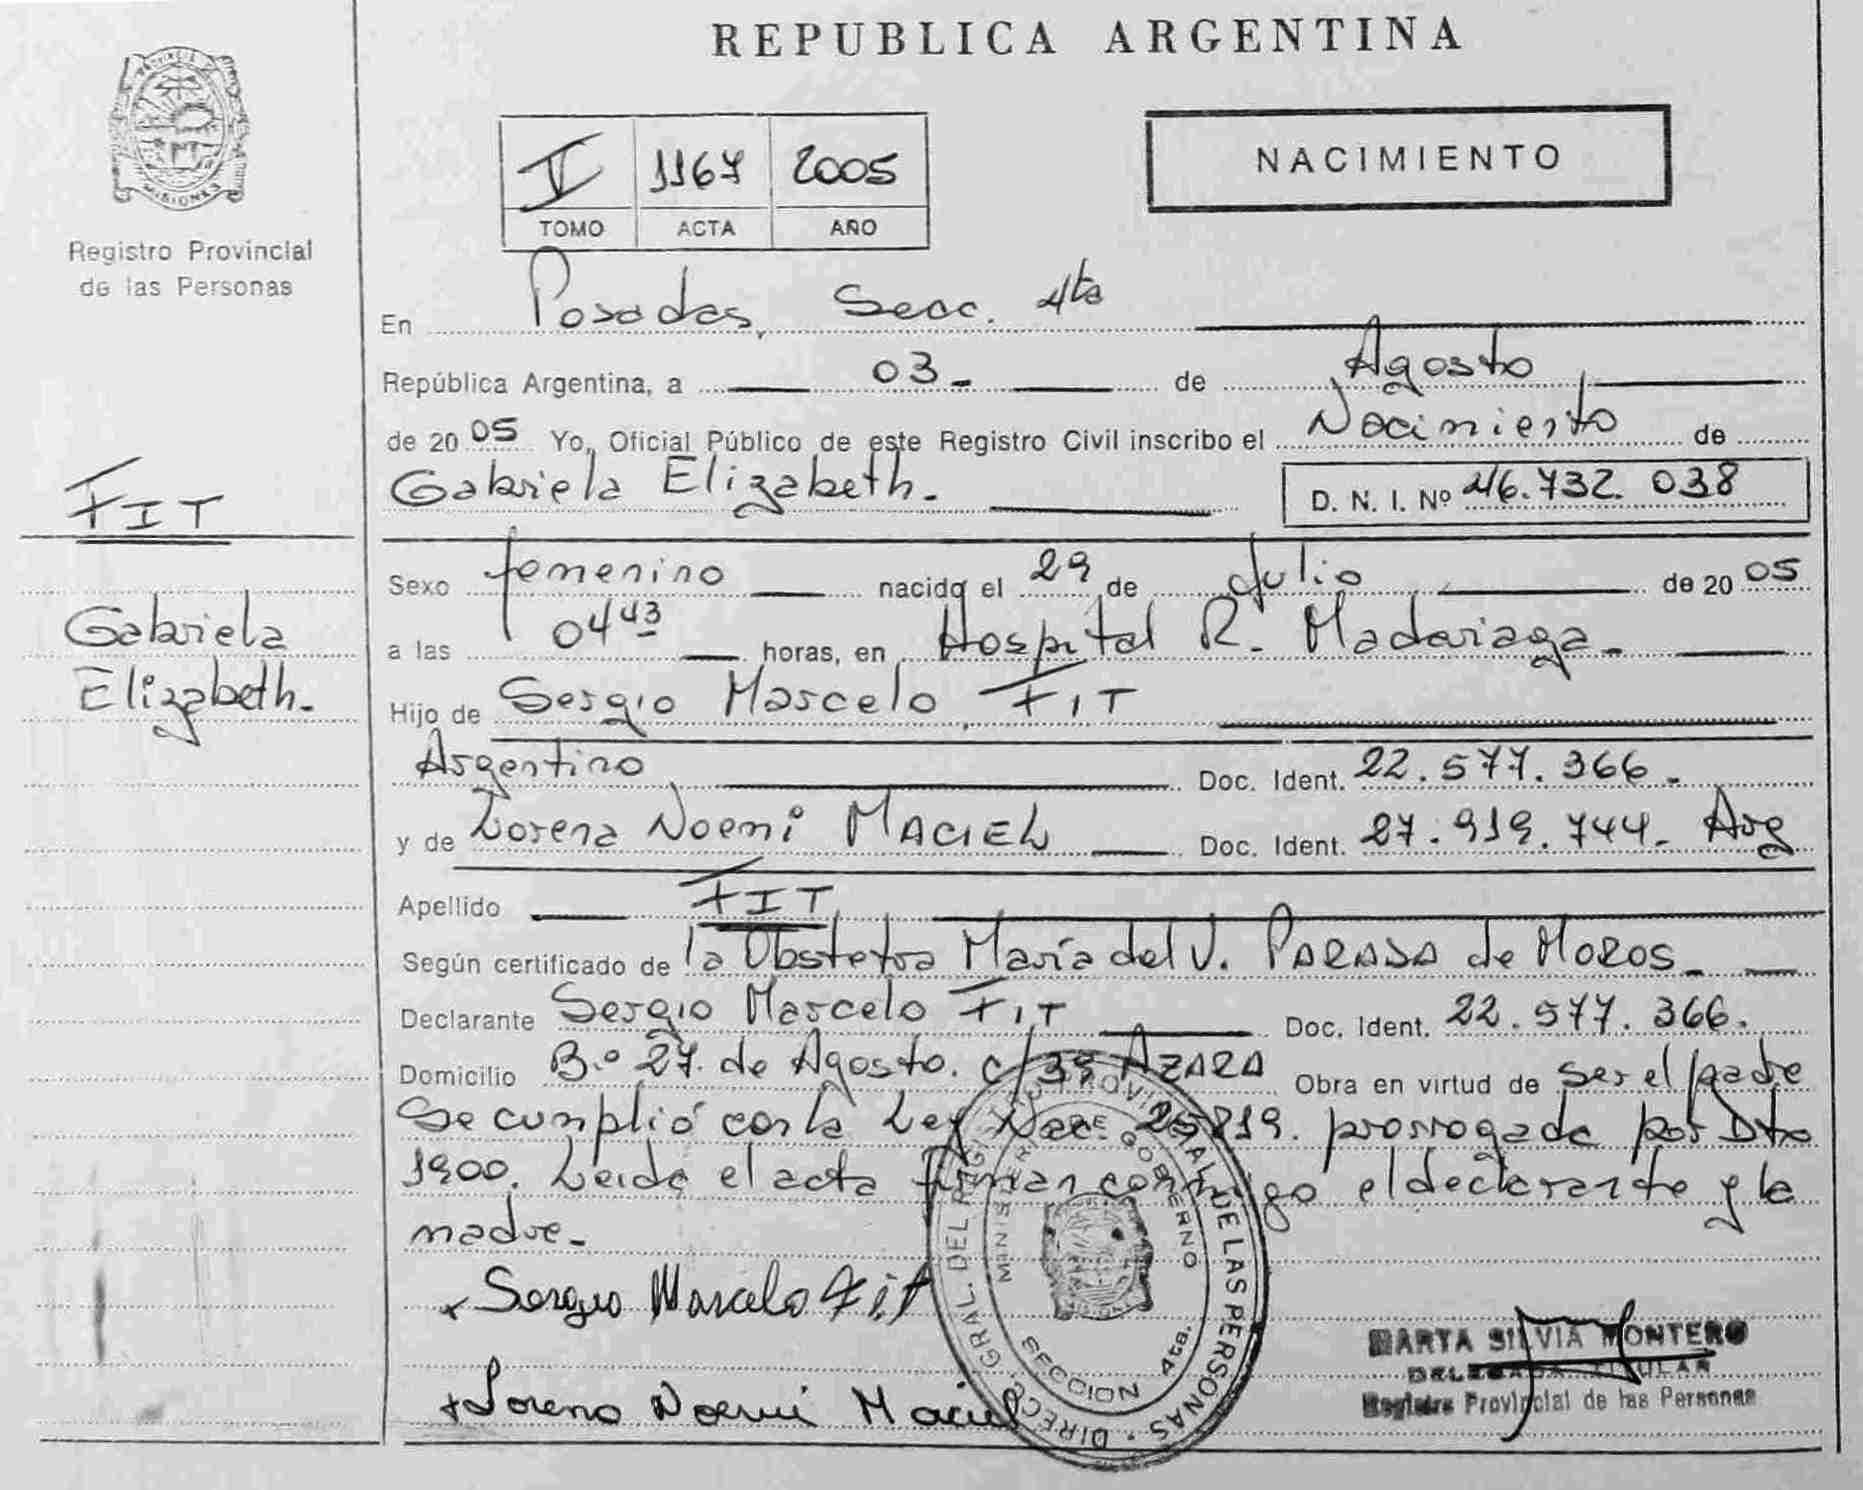 REPUBLICA ARGENTINA
PROVINCIA DE MISIONES
Registro Provincial
de las Personas
1167 2005
TOMO ACTA AÑO
NACIMIENTO
En Posadas, Secc. 4ta
República Argentina, a 03- de Agosto
de 2005 Yo, Oficial Público de este Registro Civil inscribo el Nacimiento de
Gabriela Elizabeth. D. N. I. Nº 46.732.038
FIT
Gabriela
Elizabeth.
Sexo femenino nacido el 29 de Julio de 2005
a las 04 43 horas, en Hospital R. Madariaga-
Hijo de Sergio Marcelo FIT
Argentino Doc. Ident. 22.577.366-
y de Lorena Noemi MACIEL Doc. Ident. 27.919.744- Arg
Apellido FIT
Según certificado de la Obstetra María del V. PARADA de MOROS-
Declarante Sergio Marcelo FIT Doc. Ident. 22.577.366.
Domicilio B.º 27 de Agosto. c/39 AZARA Obra en virtud de ser el padre
Se cumplió con la Ley Nac. 25819. prorrogada por Dto
1900. Leida el acta firman conmigo el declarante y la
madre-
x Sergio Marcelo Fit
x Lorena Noemi Maciel
DIRECC. GRAL. DEL REGISTRO PROVINCIAL DE LAS PERSONAS
MINISTERIO DE GOBIERNO
SECCION 4ta.
MARTA SILVIA MONTERO
DELEGADA TITULAR
Registro Provincial de las Personas